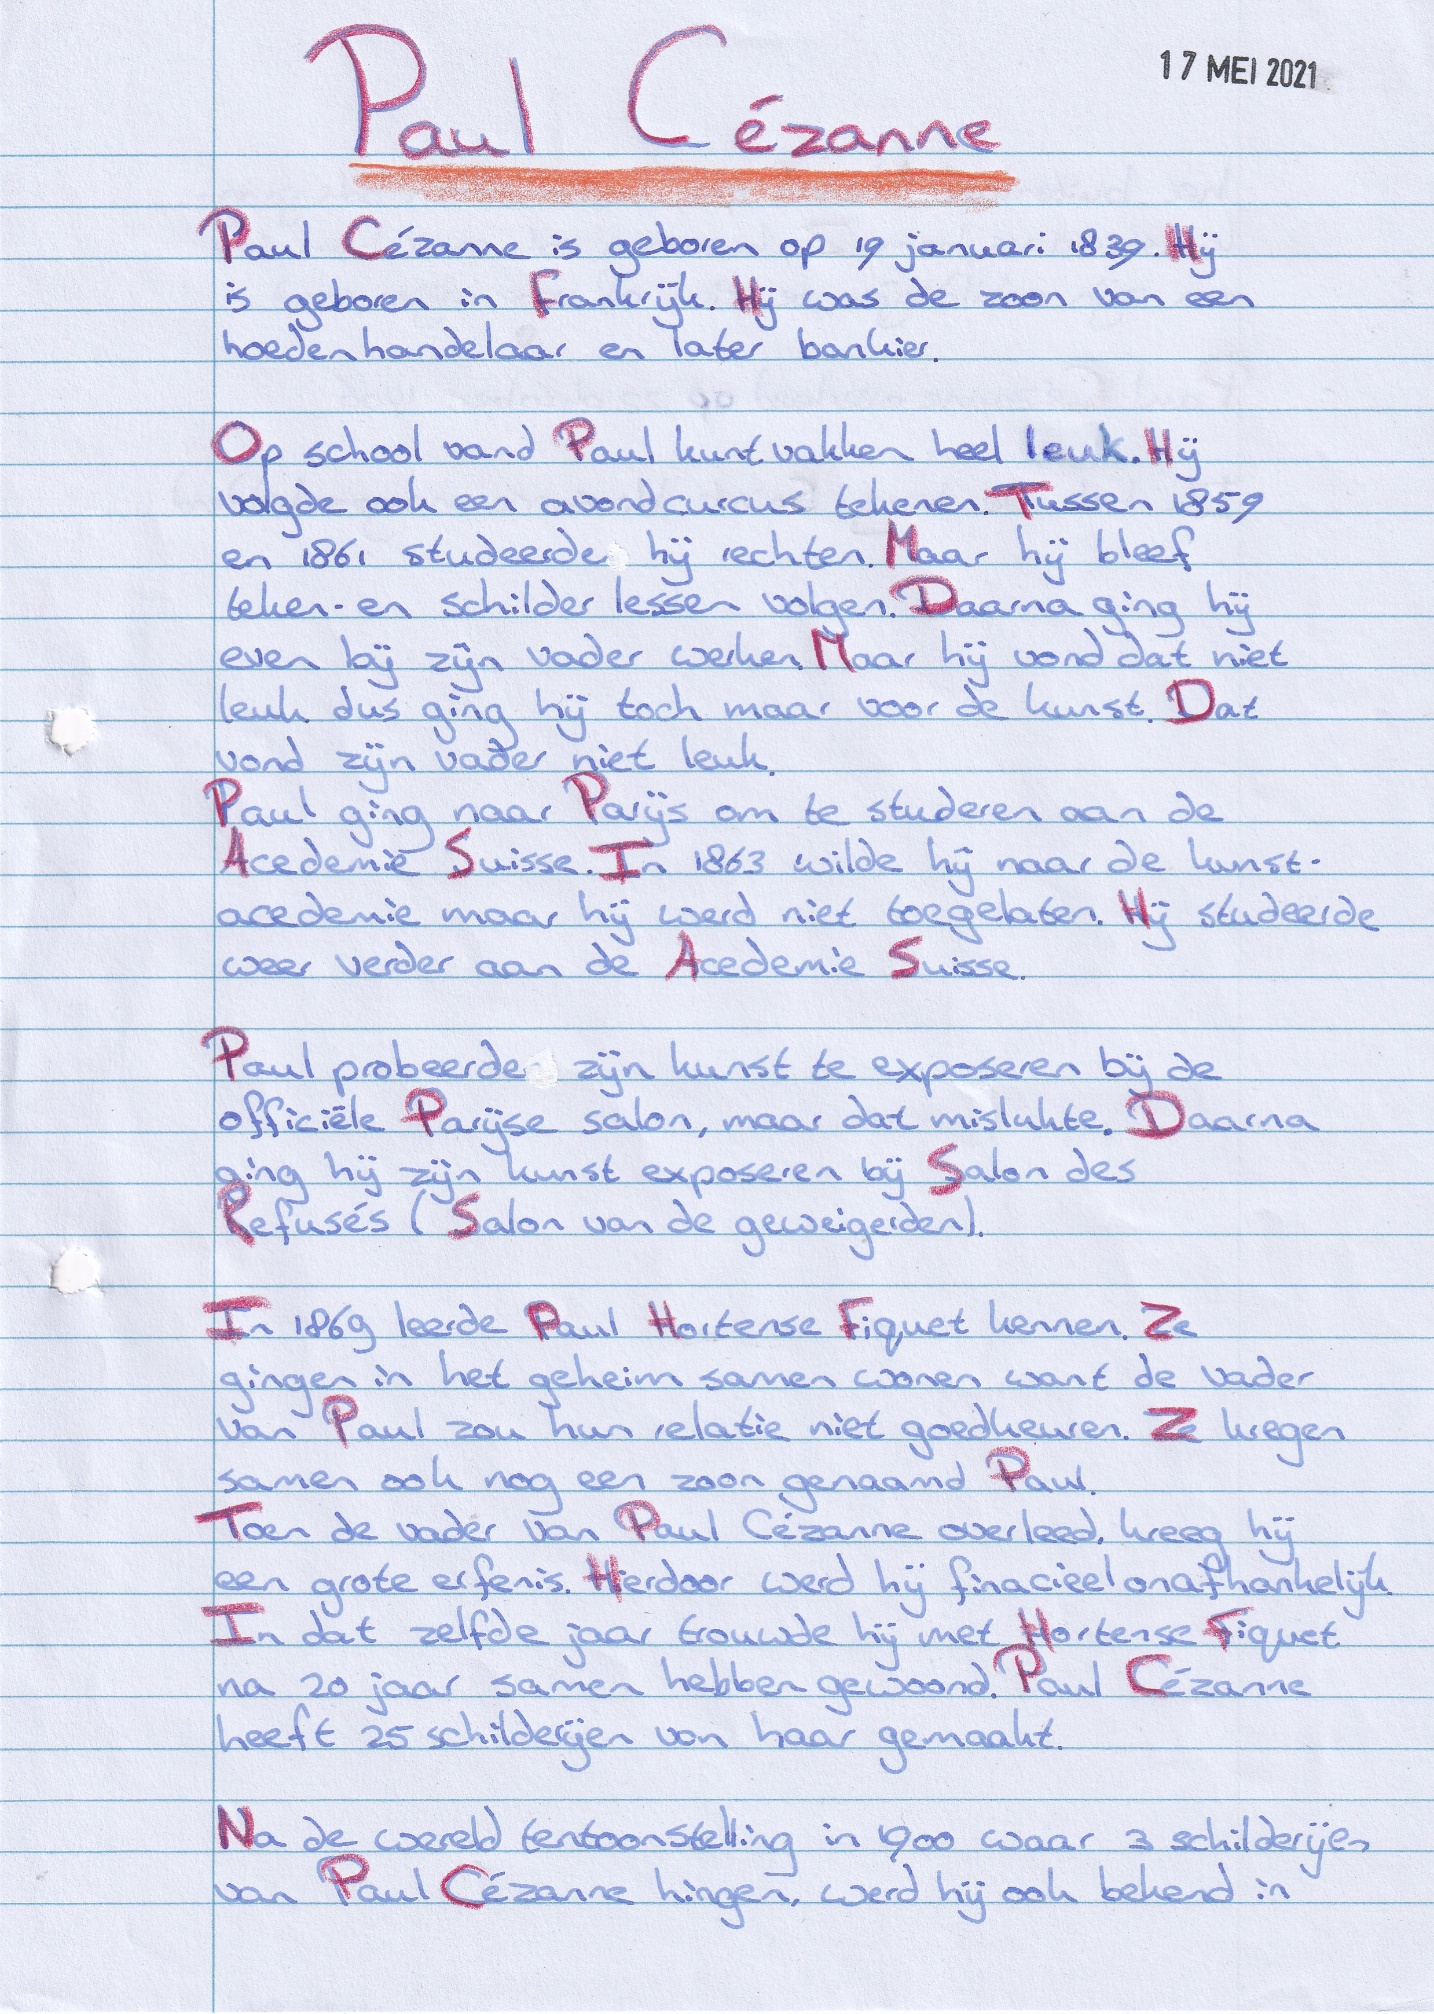 17 MEI 2021
Paul Cézanne
Paul Cézanne is geboren op 19 januari 1839. Hij
is geboren in Frankrijk. Hij was de zoon van een
hoedenhandelaar en later bankier.
Op school vand Paul kunt vakken heel leuk. Hij
volgde ook een avondcurcus tekenen. Tussen 1859
en 1861 studeerde hij rechten. Maar hij bleef
teken- en schilder lessen volgen. Daarna ging hij
even bij zijn vader werken. Maar hij vond dat niet
leuk dus ging hij toch maar voor de kunst. Dat
vond zijn vader niet leuk.
Paul ging naar Parijs om te studeren aan de
Acedemie Suisse. In 1863 wilde hij naar de kunst-
acedemie maar hij werd niet toegelaten. Hij studeerde
weer verder aan de Acedemie Suisse.
Paul probeerde zijn kunst te exposeren bij de
officiële Parijse salon, maar dat mislukte. Daarna
ging hij zijn kunst exposeren bij Salon des
Refusés (Salon van de geweigerden).
In 1869 leerde Paul Hortense Fiquet kennen. Ze
gingen in het geheim samen wonen want de vader
van Paul zou hun relatie niet goedkeuren. Ze kregen
samen ook nog een zoon genaamd Paul.
Toen de vader van Paul Cézanne overleed, kreeg hij
een grote erfenis. Hierdoor werd hij finacieel onafhankelijk.
In dat zelfde jaar trouwde hij met Hortense Fiquet
na 20 jaar samen hebben gewoond. Paul Cézanne
heeft 25 schilderijen van haar gemaakt.
Na de wereld tentoonstelling in 1900 waar 3 schilderijen
van Paul Cézanne hingen, werd hij ook bekend in